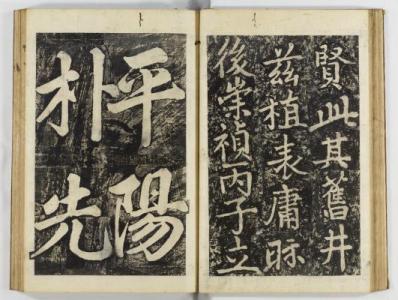 賢此其舊井
茲植表庸眎
後崇禎丙子立
平陽
朴先